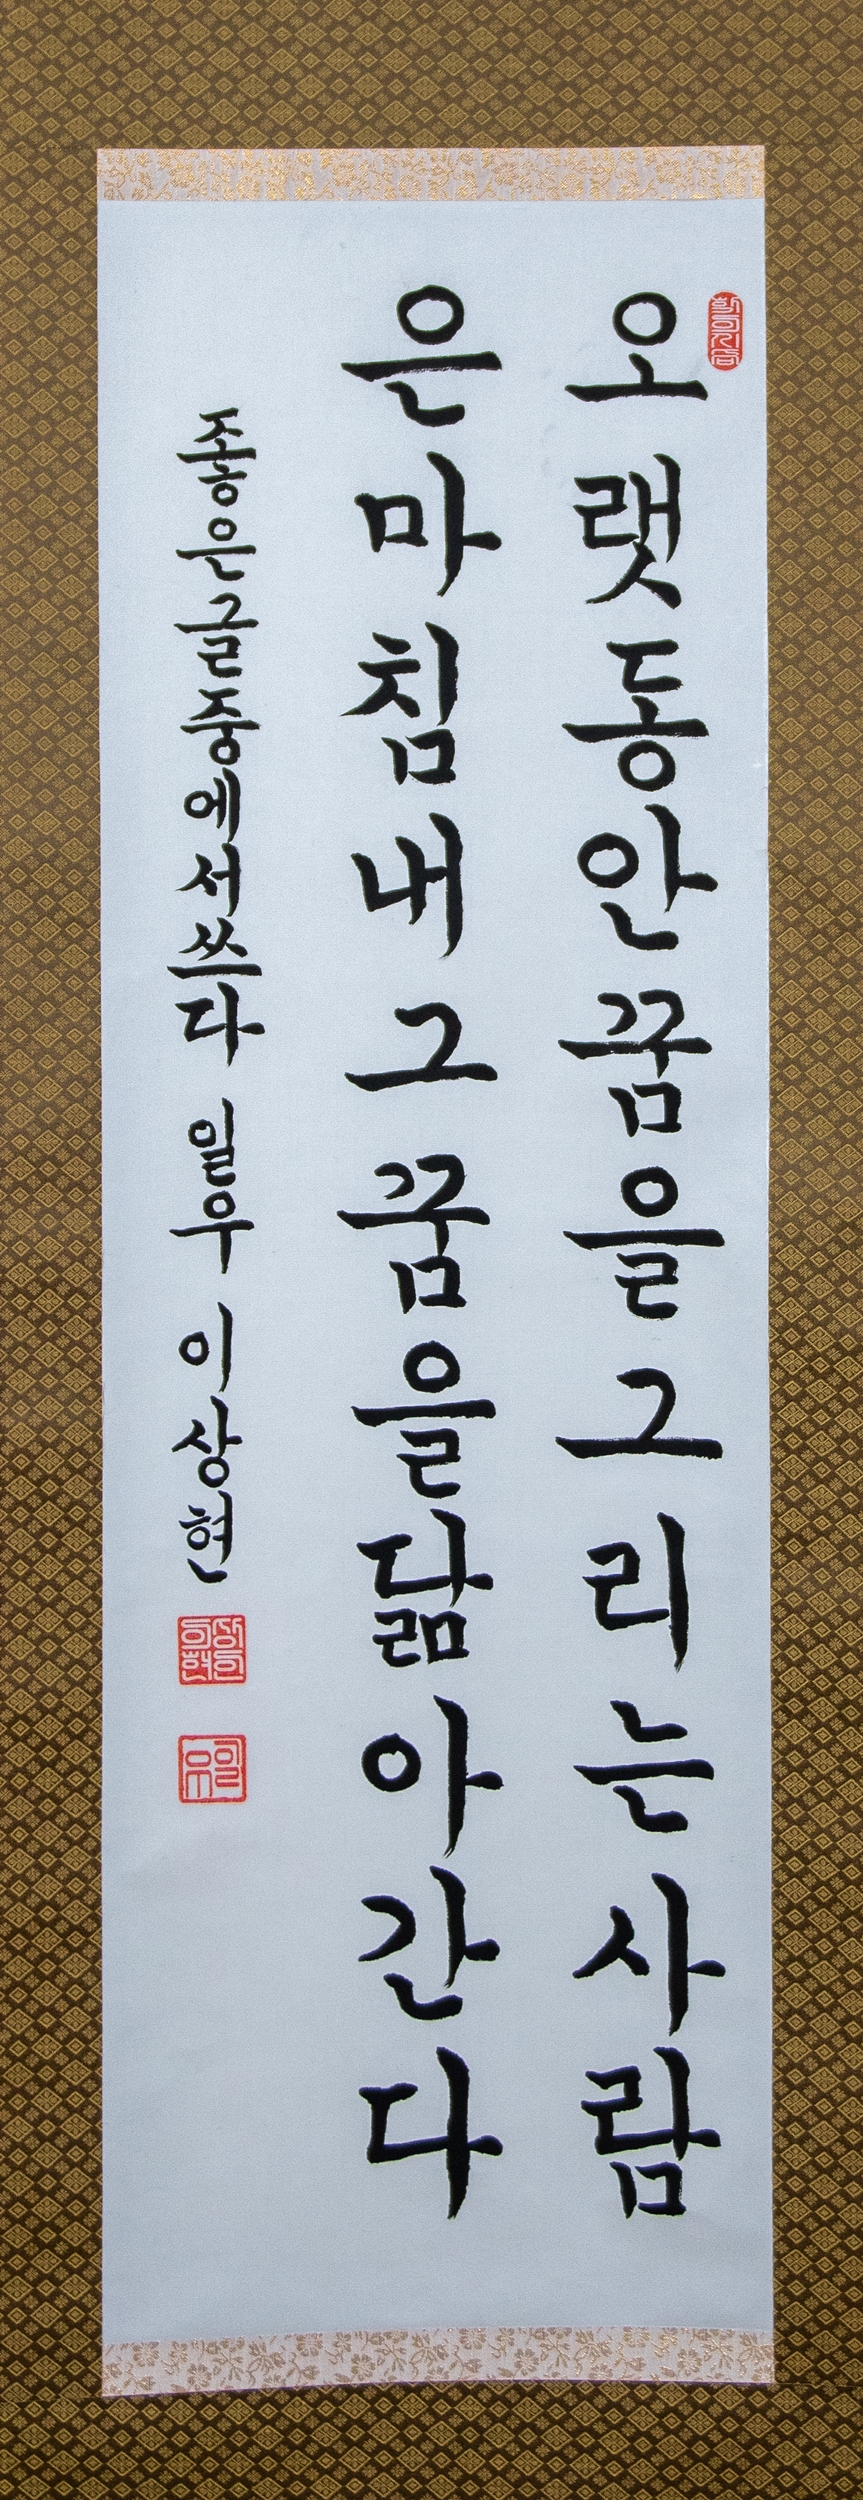 오랫동안꿈을그리는사람
은마침내그꿈을닮아간다
좋은글중에서쓰다 일우 이상현